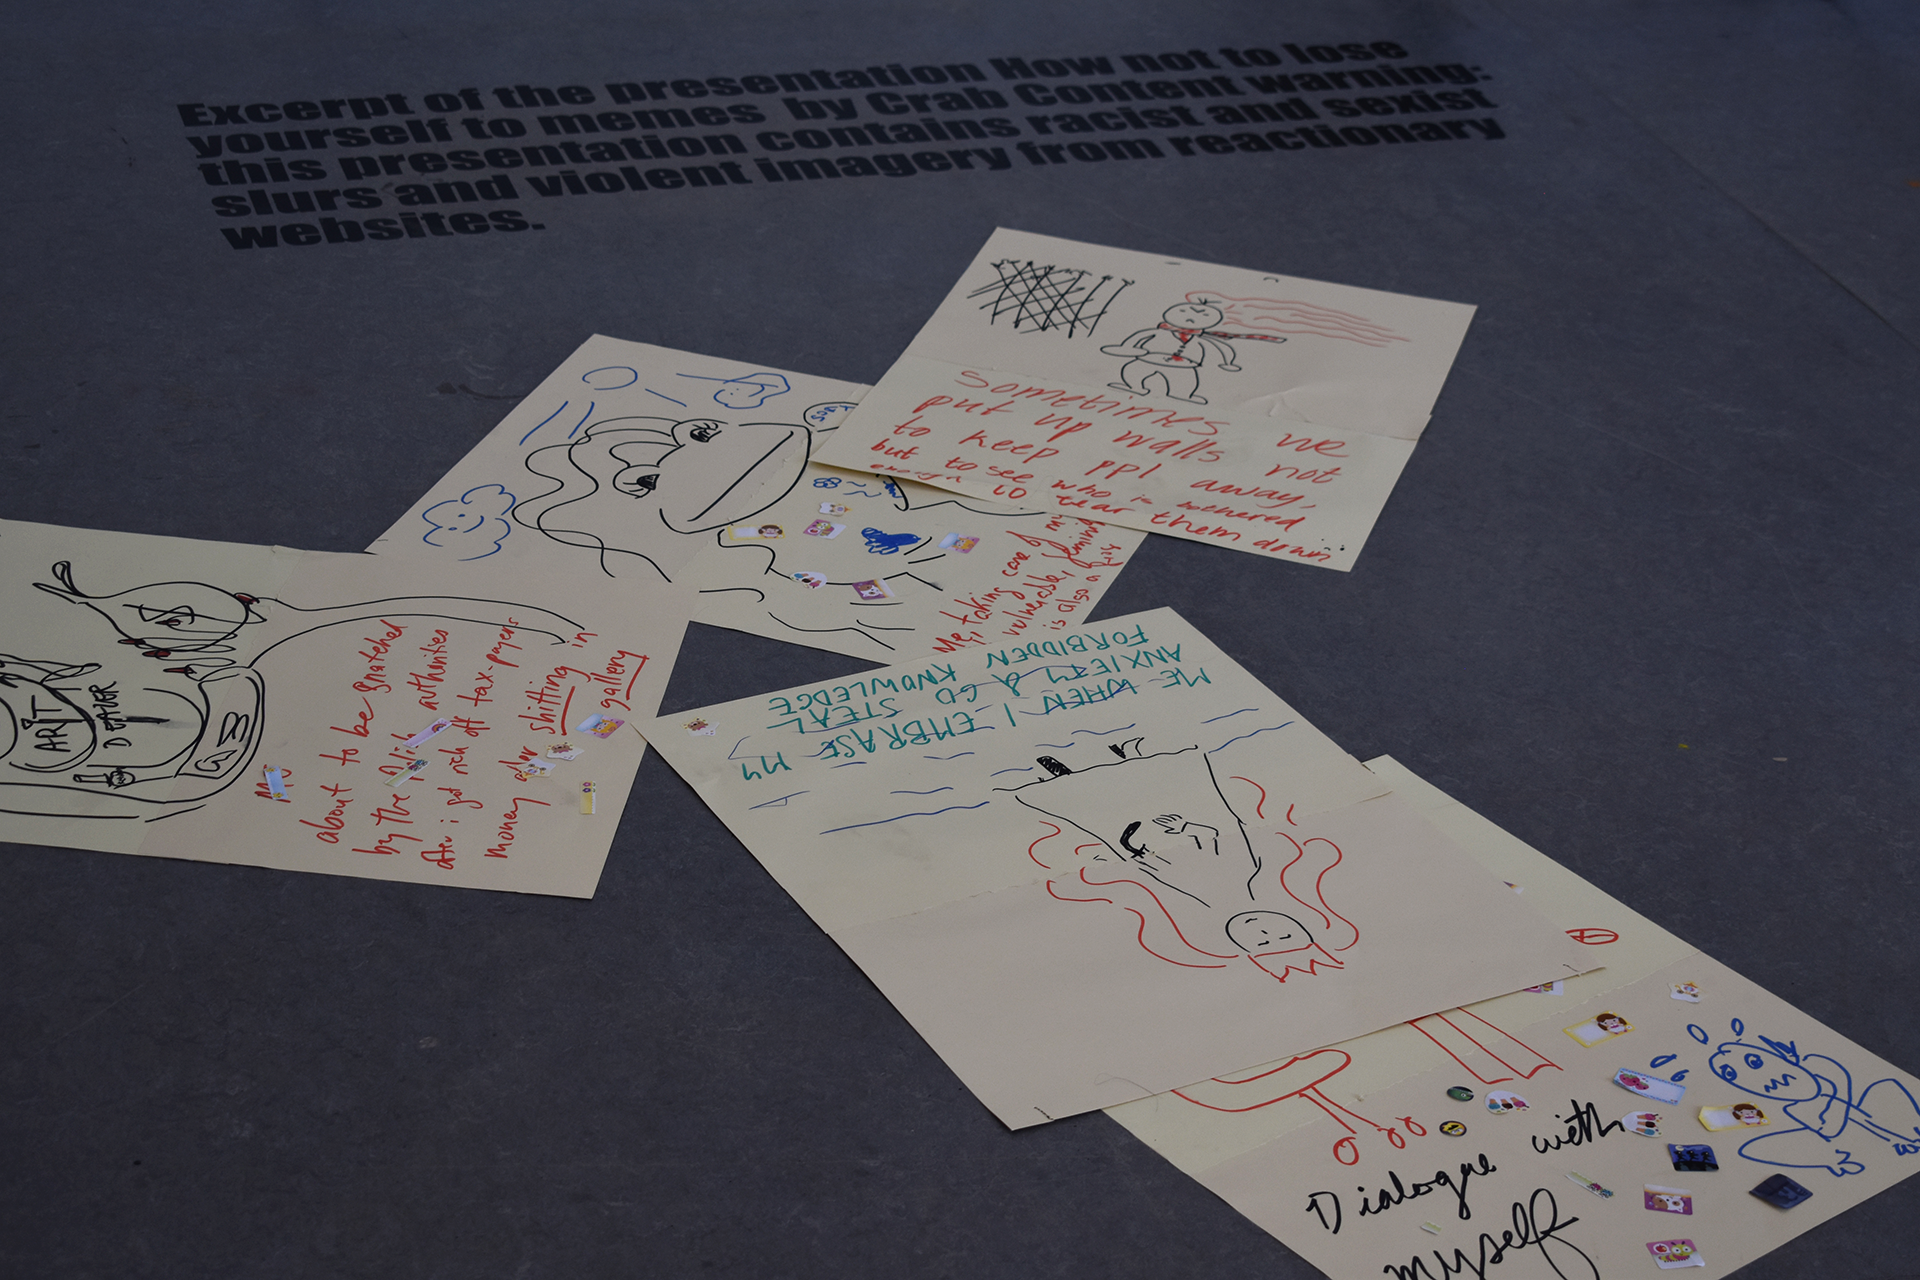 Excerpt of the presentation How not to lose
yourself to memes by Crab Content warning:
this presentation contains racist and sexist
slurs and violent imagery from reactionary
websites.
sometimes we
put up walls not
to keep ppl away,
but to see who is bothered
enough to tear them down
Me, taking care of my
vulnerable,
is also a
ME WHEN I EMBRASE MY
ANXIETY & GO STEAL
FORBIDDEN KNOWLEDGE
ART
DEALER
Me
about to be snatched
by the authorities
after i got rich off tax-payers
money after shitting in
gallery
Dialogue with
myself